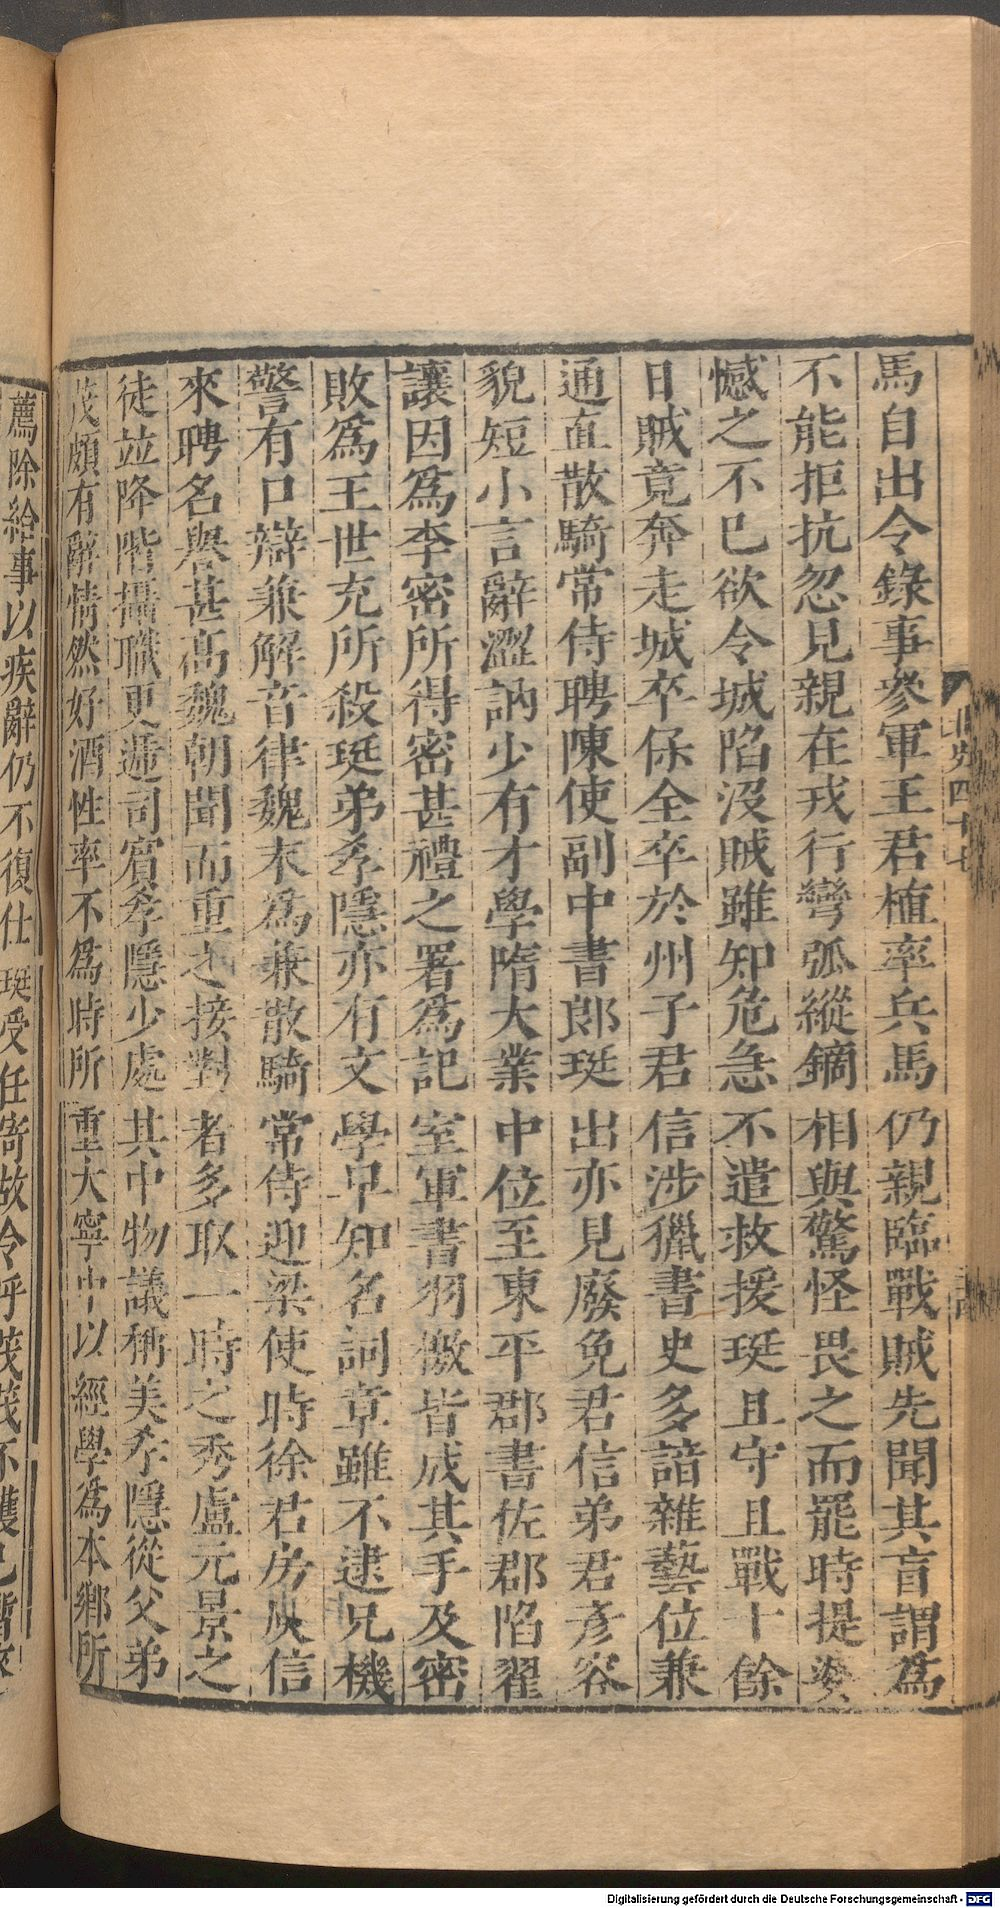 馬自出令錄事參軍王君植率兵馬仍親臨戰賊先聞其盲謂爲
不能拒抗忽見親在戎行彎弧縱鏑相與驚怪畏之而罷時提婆
憾之不已欲令城陷沒賊雖知危急不遣救援珽且守且戰十餘
日賊竟奔走城卒保全卒於州子君信涉獵書史多諳雜藝位兼
通直散騎常侍聘陳使副中書郎珽出亦見廢免君信弟君彥容
貌短小言辭澀訥少有才學隋大業中位至東平郡書佐郡陷翟
讓因爲李密所得密甚禮之署爲記室軍書羽檄皆成其手及密
敗爲王世充所殺珽弟孝隱亦有文學早知名詞章雖不逮兄機
警有口辯兼解音律魏末爲兼散騎常侍迎梁使時徐君房庾信
來聘名譽甚高魏朝聞而重之接對者多取一時之秀盧元景之
徒並降階攝職更遞司賓孝隱少處其中物議稱美孝隱從父弟
茂頗有辭情然好酒性率不爲時所重大寧中以經學爲本鄉所
薦除給事以疾辭仍不復仕珽受任寄故令呼茂茂不獲已暫來
北史四十七
Digitalisierung gefördert durch die Deutsche Forschungsgemeinschaft - DFG